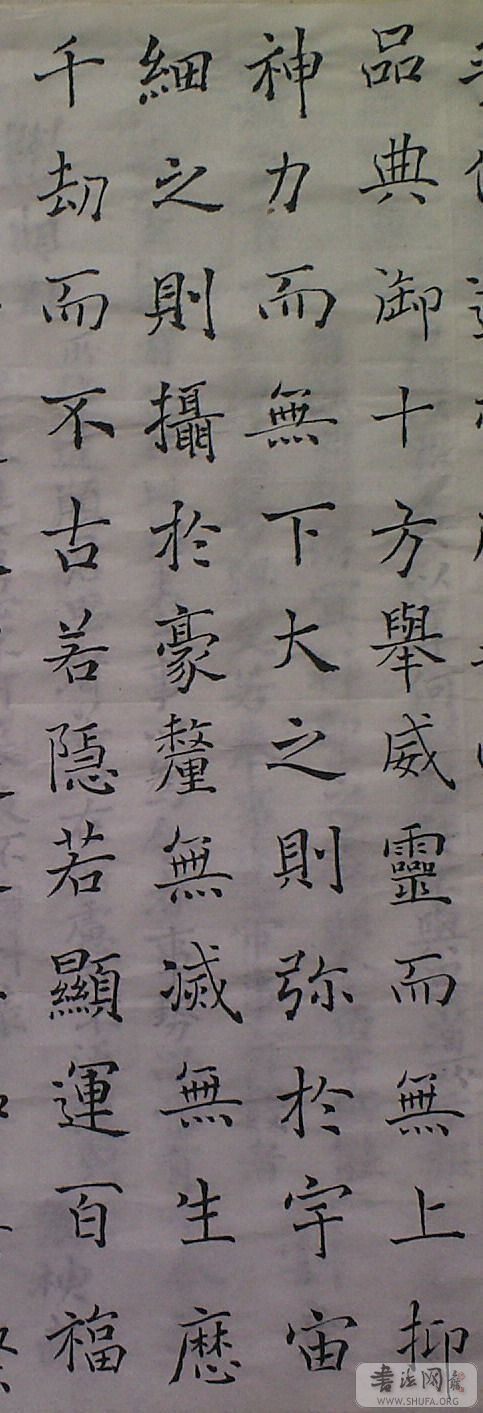 品典御十方舉威靈而無上抑
神力而無下大之則弥於宇宙
細之則攝於豪釐無滅無生歷
千劫而不古若隱若顯運百福
書法网
WWW.SHUFA.ORG